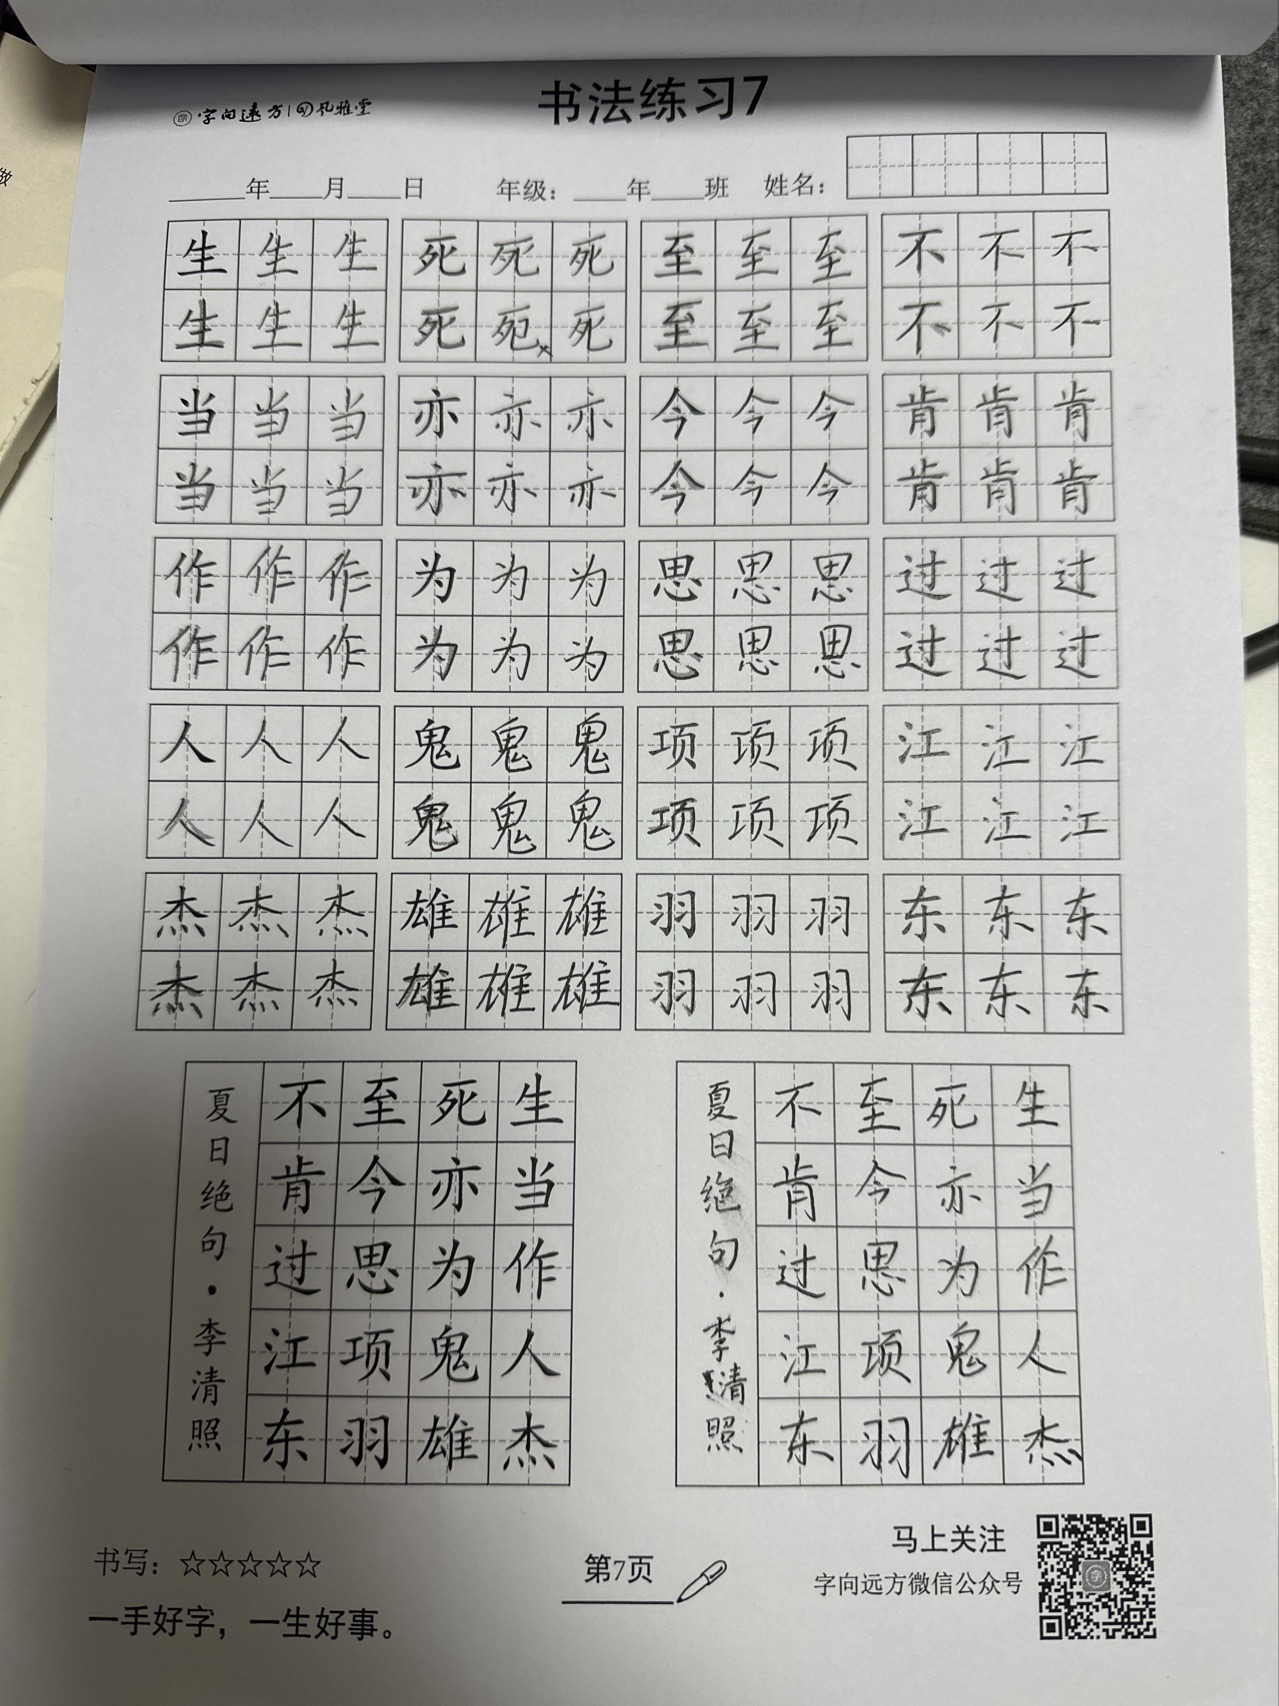 字向远方 风雅堂
书法练习7
年 月 日 年级： 年 班 姓名：
生生生 死死死 至至至 不不不
生生生 死死死 至至至 不不不
当当当 亦亦亦 今今今 肯肯肯
当当当 亦亦亦 今今今 肯肯肯
作作作 为为为 思思思 过过过
作作作 为为为 思思思 过过过
人人人 鬼鬼鬼 项项项 江江江
人人人 鬼鬼鬼 项项项 江江江
杰杰杰 雄雄雄 羽羽羽 东东东
杰杰杰 雄雄雄 羽羽羽 东东东
生当作人杰
死亦为鬼雄
至今思项羽
不肯过江东
夏日绝句·李清照
生当作人杰
死亦为鬼雄
至今思项羽
不肯过江东
夏日绝句·李清照
书写：☆☆☆☆☆
一手好字，一生好事。
第7页
马上关注
字向远方微信公众号